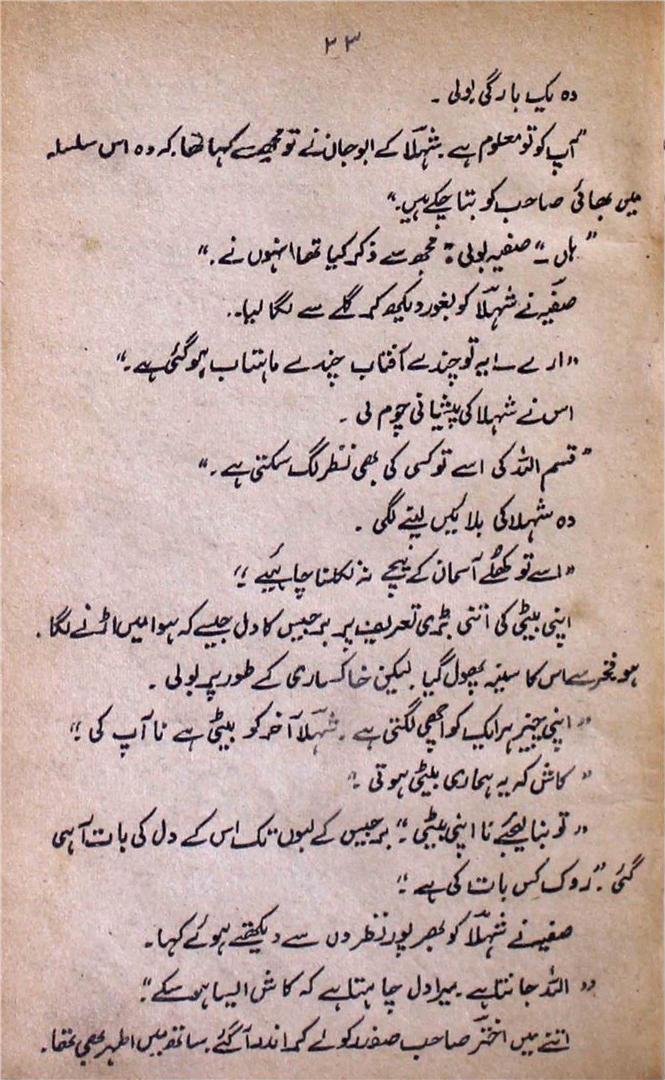 ۲۳
وہ یک بارگی بولی ۔
"آپ کو تو معلوم ہے۔ شہلا کے ابو جان نے تو مجھ سے کہا تھا کہ وہ اس سلسلہ
میں بھائی صاحب کو بتا چکے ہیں۔"
"ہاں ۔" صفیہ بولی: "مجھ سے ذکر کیا تھا انہوں نے ۔"
صفیہ نے شہلا کو بغور دیکھ کر گلے سے لگا لیا۔.
"ارے ۔۔ یہ تو چندے آفتاب چندے ماہتاب ہو گئی ہے۔"
اس نے شہلا کی پیشانی چوم لی ۔
"قسم اللہ کی اسے تو کسی کی بھی نظر لگ سکتی ہے ۔"
وہ شہلا کی بلائیں لینے لگی ۔
"اسے تو کھلے آسمان کے نیچے نہ نکلنا چاہئیے !"
اپنی بیٹی کی اتنی بڑی تعریف پر برجیس کا دل جیسے کہ ہوا میں اڑنے لگا ۔
ہو فخر سے اس کا سینہ پھول گیا ۔ لیکن خاکساری کے طور پر بولی ۔
"اپنی چیز ہر ایک کو اچھی لگتی ہے ۔ شہلا آخر کو بیٹی ہے نا آپ کی !"
"کاش کہ یہ ہماری بیٹی ہوتی ۔"
"تو بنا لیجئے نا اپنی بیٹی ۔" برجیس کے لبوں تک اس کے دل کی بات آ ہی
گئی ۔ "روک کس بات کی ہے !"
صفیہ نے شہلا کو بھرپور نظروں سے دیکھتے ہوئے کہا۔
"اللہ جانتا ہے ۔ میرا دل چاہتا ہے کہ کاش ایسا ہو سکے ۔"
اتنے میں اختر صاحب صفدر کو لے کر اندر آ گئے ۔ ساتھ میں اطہر بھی تھا ۔